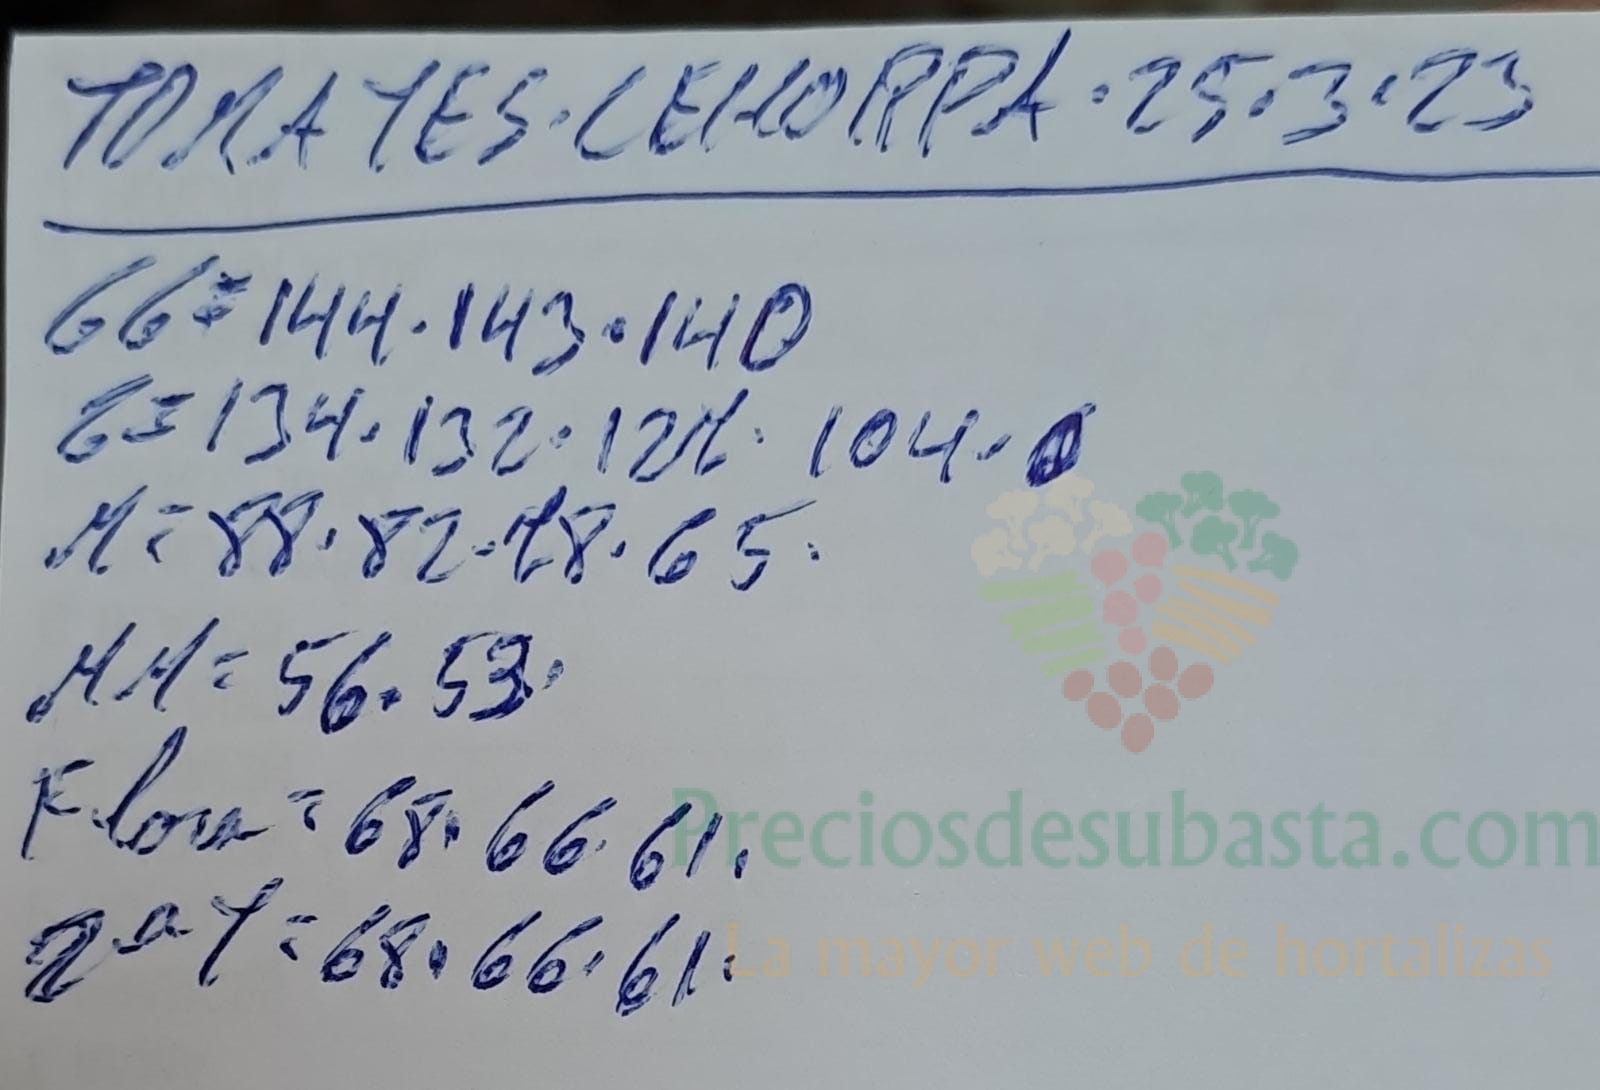 TOMATES·CEHORPA·25·3·23
GG=144·143·140
G=134·132·127·104·
M=88·82·78·65·
MM=56·53·
Flora=68·66·61.
2ªT=68·66·61.
Preciosdesubasta.com
La mayor web de hortalizas